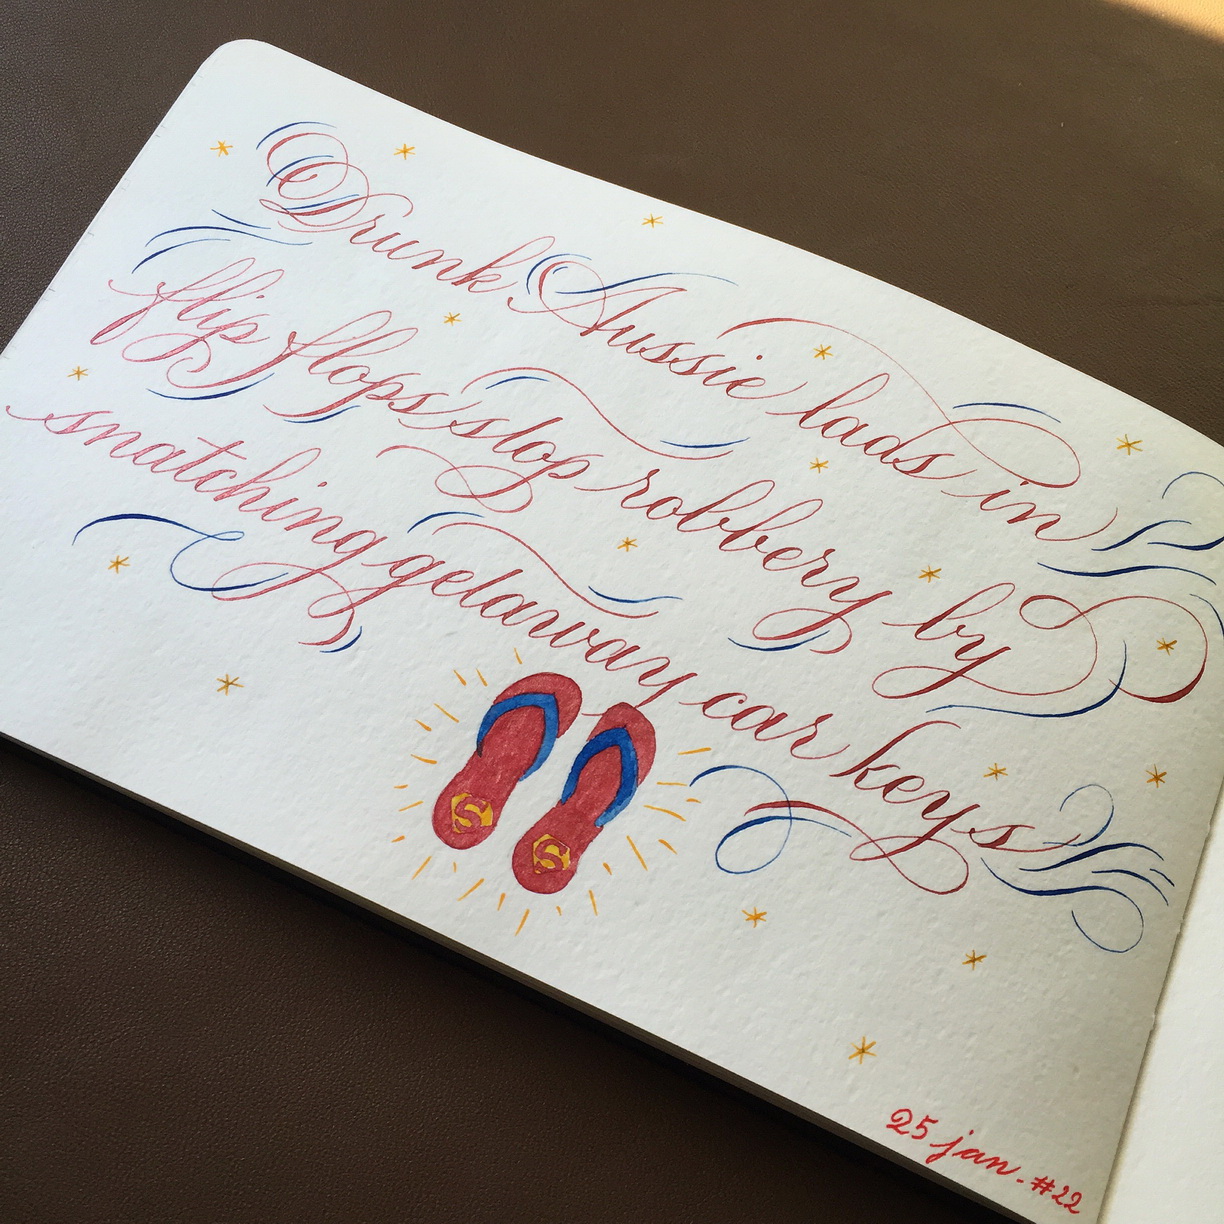 Drunk Aussie lads in
flip flops stop robbery by
snatching getaway car keys
S S
25 jan. #22